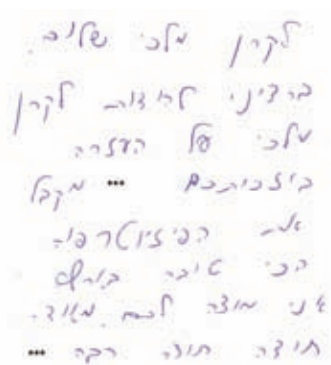 לקרן מלכי שלום.
ברצוני להודות לקרן
מלכי על העזרה
בזכותכם ... מקבל
את הפיזיוטרפיה
הכי טובה בעולם
אני מודה לכם מאוד.
תודה תודה רבה ...